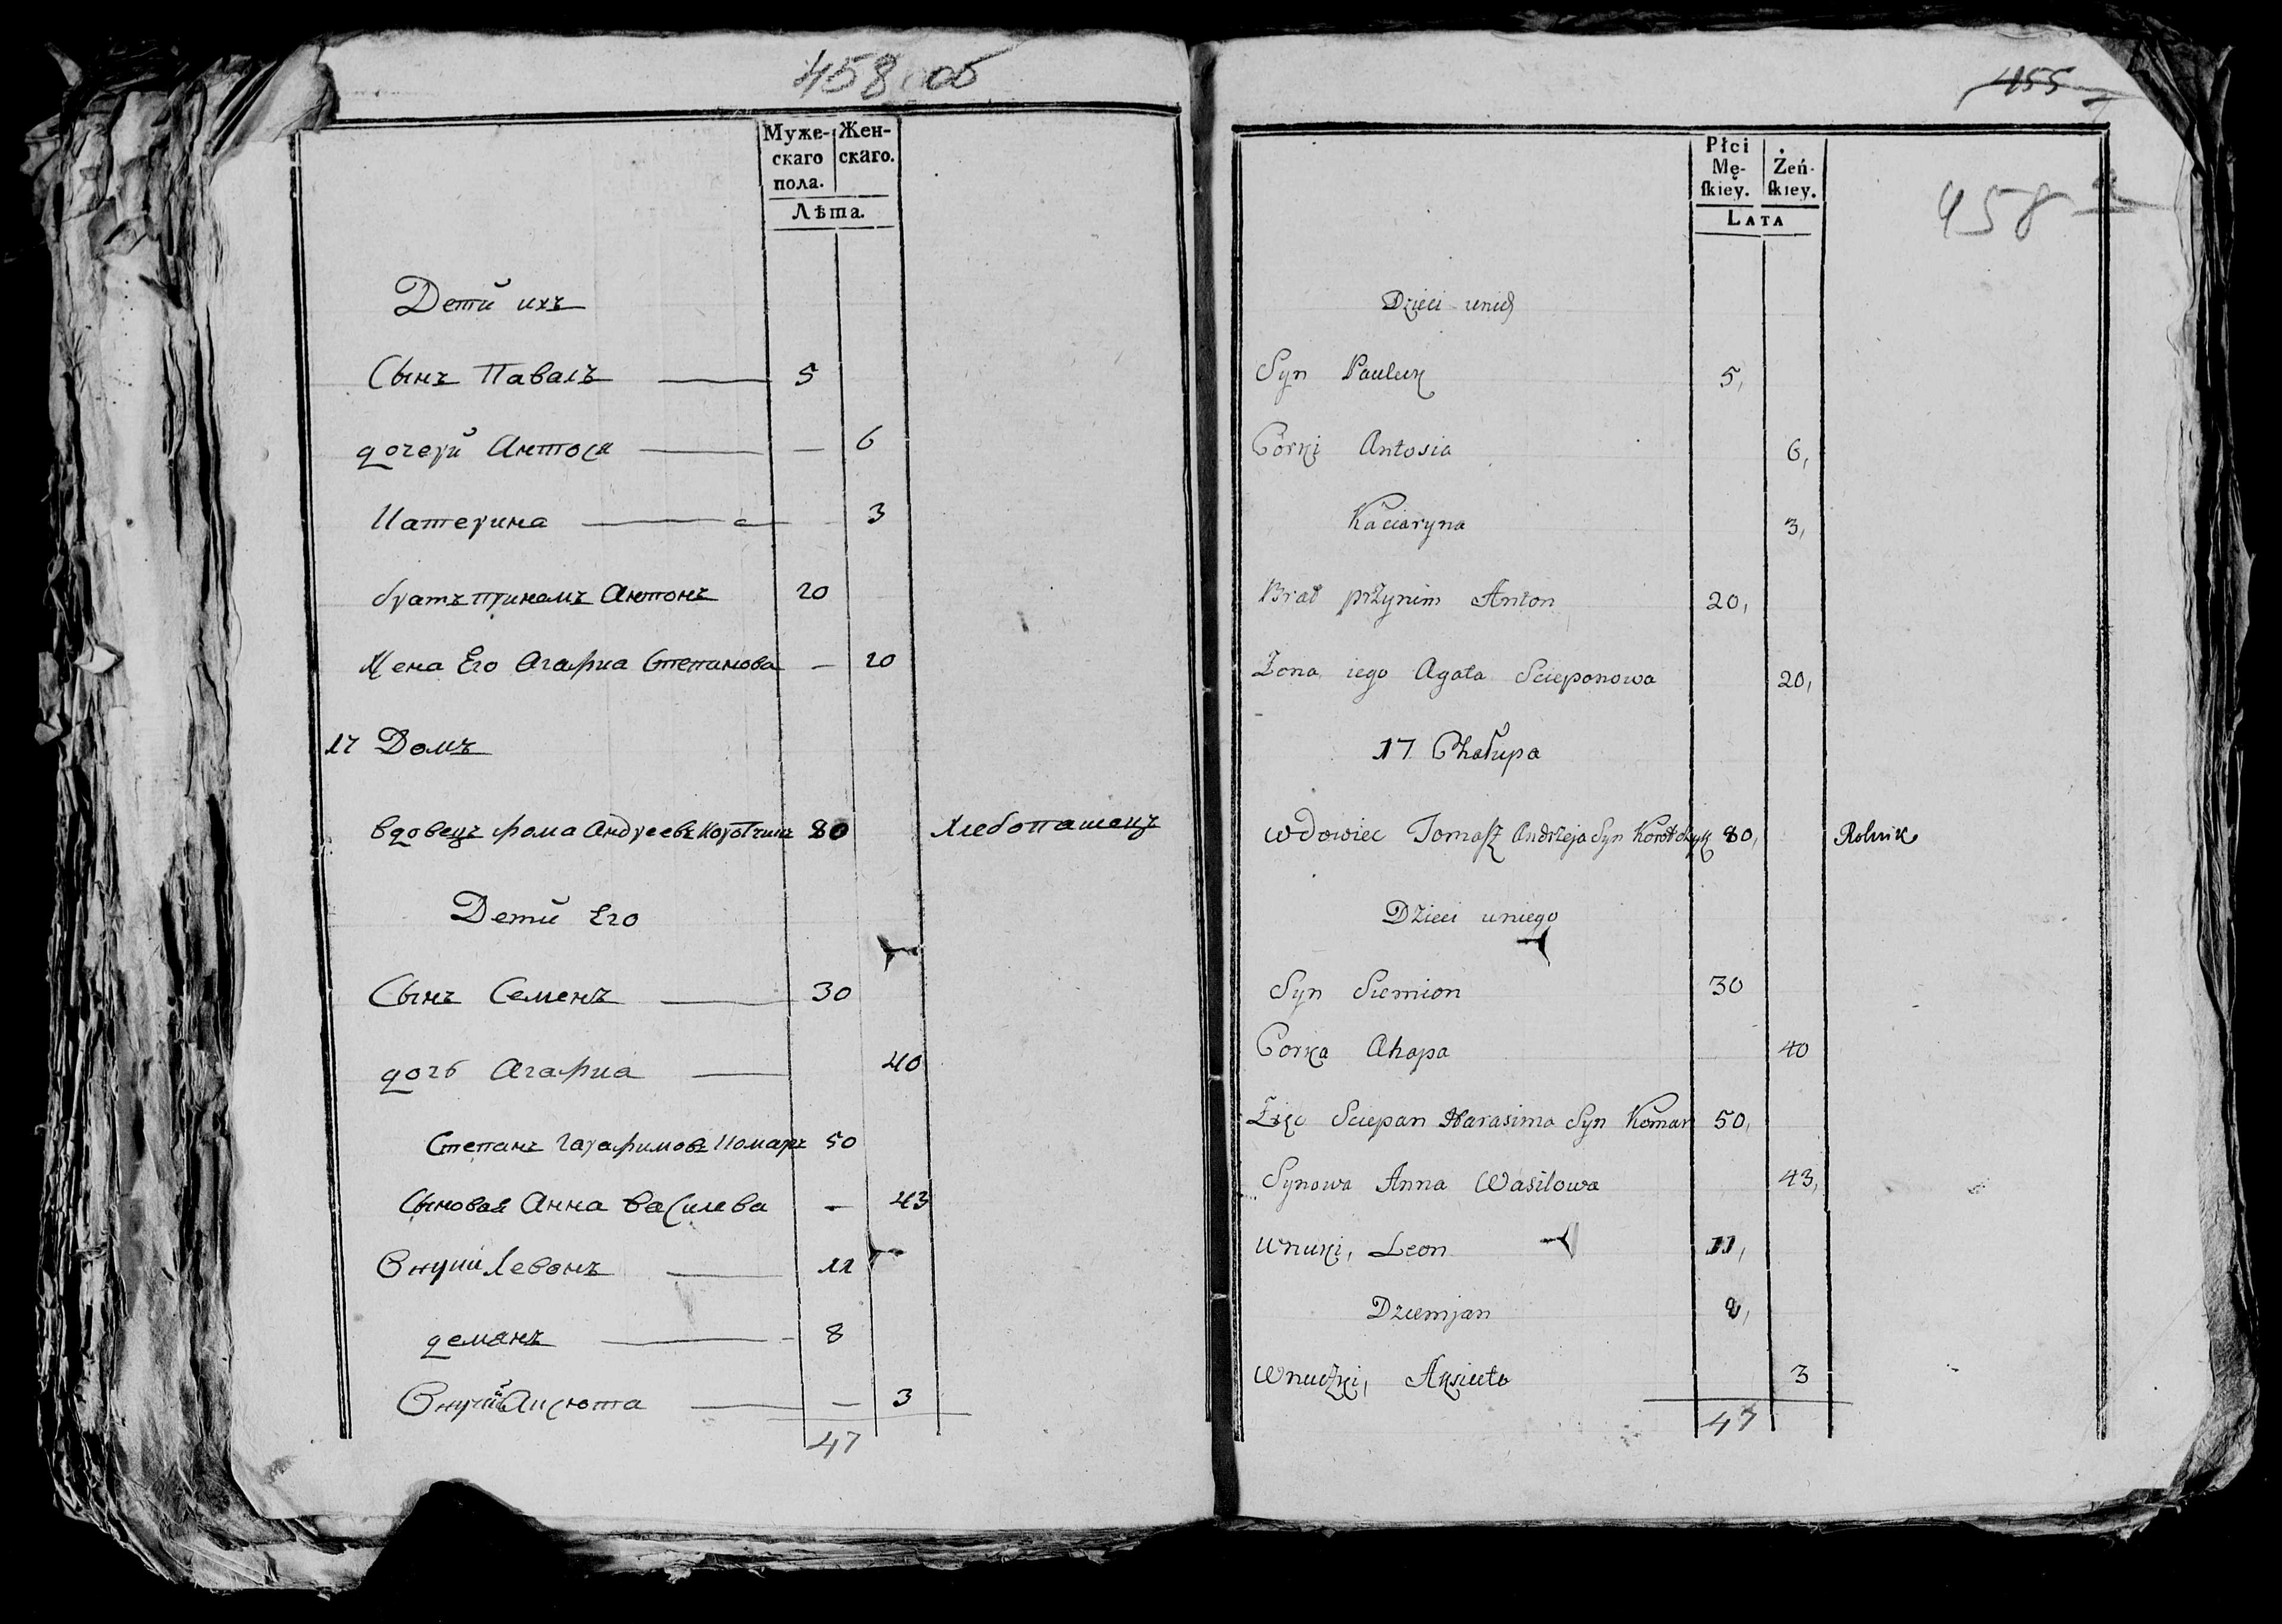 458 об
Муже-
скаго
пола.
Жен-
скаго.
Лѣта.
Дети ихъ
Сынъ Павалъ 5
дочери Антося — 6
Катерина 3
братъ приномъ Антонъ 20
Жена Его Агафиа Степанова — 20
17 Домъ
вдовецъ фома Андреевъ Коротчикъ 80 Хлебопашецъ
Дети Его
Сынъ Семенъ 30
дочь Агафиа 40
Степанъ Гарафимовъ Комаръ 50
Сыновая Анна Василева — 43
Внуки Левонъ 11
демянъ 8
Внуки Аксюта — 3
47
455
458
Płci
Mę-
skiey.
Żeń-
skiey.
LATA
Dzieci unich
Syn Pauluk 5,
Córki Antosia 6,
Kaciaryna 3,
Brat przynim Anton 20,
Żona iego Agata Scieponowa 20,
17 Chałupa
Wdowiec Tomasz Andrzeja Syn Korotczyk 80, Rolnik
Dzieci uniego
Syn Siemion 30
Corka Ahapa 40
Zięć Sciepan Harasima Syn Komar 50,
Synowa Anna Wasilowa 43,
Wnuki, Leon 11,
Dziemjan 8,
Wnuczki, Aksiuta 3
47